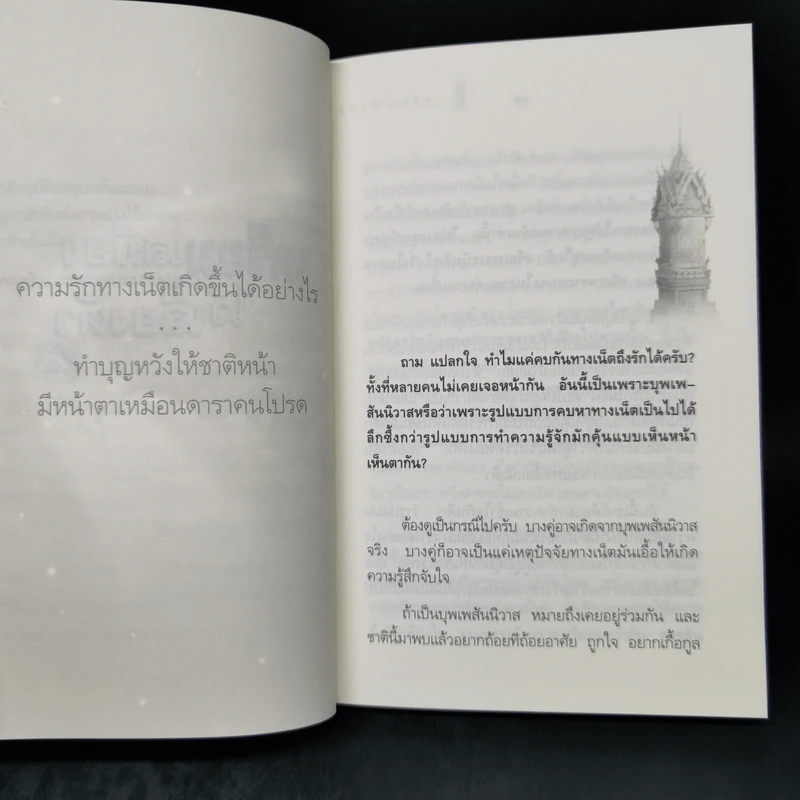 ความรักทางเน็ตเกิดขึ้นได้อย่างไร
...
ทำบุญหวังให้ชาติหน้า
มีหน้าตาเหมือนดาราคนโปรด
ถาม แปลกใจ ทำไมแค่คบกันทางเน็ตถึงรักได้ครับ?
ทั้งที่หลายคนไม่เคยเจอหน้ากัน อันนี้เป็นเพราะบุพเพ-
สันนิวาสหรือว่าเพราะรูปแบบการคบหาทางเน็ตเป็นไปได้
ลึกซึ้งกว่ารูปแบบการทำความรู้จักมักคุ้นแบบเห็นหน้า
เห็นตากัน?
ต้องดูเป็นกรณีไปครับ บางคู่อาจเกิดจากบุพเพสันนิวาส
จริง บางคู่ก็อาจเป็นแค่เหตุปัจจัยทางเน็ตมันเอื้อให้เกิด
ความรู้สึกจับใจ
ถ้าเป็นบุพเพสันนิวาส หมายถึงเคยอยู่ร่วมกัน และ
ชาตินี้มาพบแล้วอยากถ้อยทีถ้อยอาศัย ถูกใจ อยากเกื้อกูล